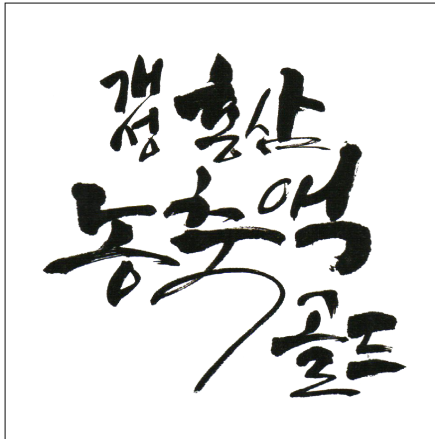 개성 홍삼
농축액
골드